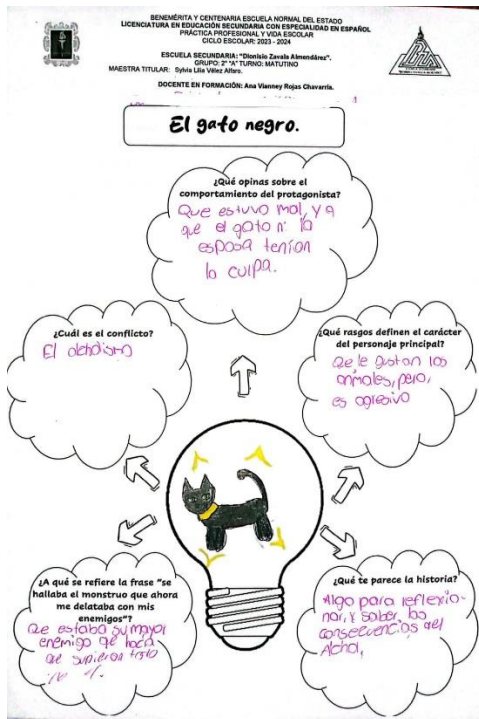 BENEMÉRITA Y CENTENARIA ESCUELA NORMAL DEL ESTADO
LICENCIATURA EN EDUCACIÓN SECUNDARIA CON ESPECIALIDAD EN ESPAÑOL
PRÁCTICA PROFESIONAL Y VIDA ESCOLAR
CICLO ESCOLAR: 2023 - 2024
ESCUELA SECUNDARIA: "Dionisio Zavala Almendárez".
GRUPO: 2° "A" TURNO: MATUTINO
MAESTRA TITULAR: Sylvia Lilia Vélez Alfaro.
DOCENTE EN FORMACIÓN: Ana Vianney Rojas Chavarría.
El gato negro.
¿Qué opinas sobre el
comportamiento del protagonista?
Que estuvo mal, ya
que el gato ni la
esposa tenían
la culpa.
¿Cuál es el conflicto?
El alcholismo
¿Qué rasgos definen el carácter
del personaje principal?
Que le gustan los
animales, pero,
es agresivo
¿A qué se refiere la frase "se
hallaba el monstruo que ahora
me delataba con mis
enemigos"?
Que estaba su mayor
enemigo que hacía
que supieran
¿Qué te parece la historia?
Algo para reflexio-
nar, y saber, las
consecuencias del
Alchol,